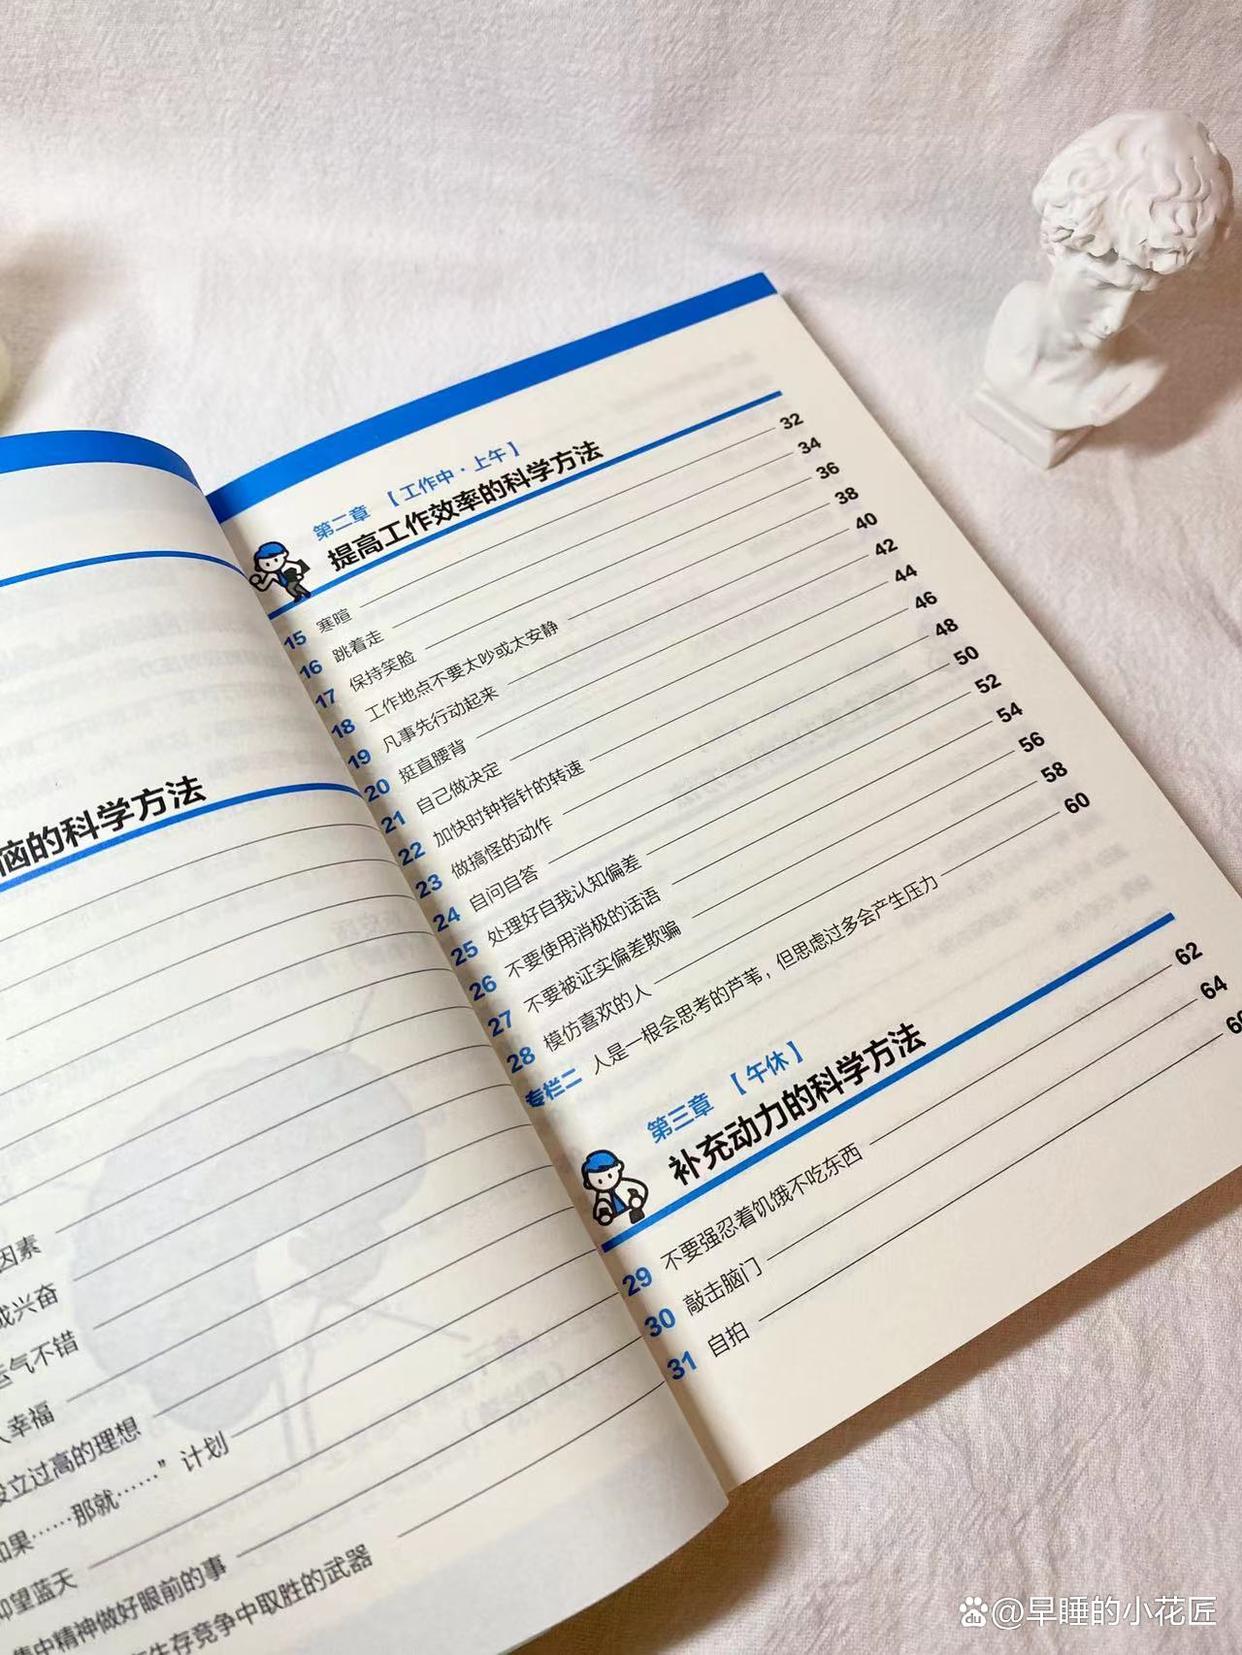 恼的科学方法
因素
成兴奋
运气不错
人幸福
设立过高的理想
如果……那就……”计划
仰望蓝天
集中精神做好眼前的事
生存竞争中取胜的武器
第二章 【工作中·上午】
提高工作效率的科学方法
15 寒暄 32
16 跳着走 34
17 保持笑脸 36
18 工作地点不要太吵或太安静 38
19 凡事先行动起来 40
20 挺直腰背 42
21 自己做决定 44
22 加快时钟指针的转速 46
23 做搞怪的动作 48
24 自问自答 50
25 处理好自我认知偏差 52
26 不要使用消极的话语 54
27 不要被证实偏差欺骗 56
28 模仿喜欢的人 58
专栏二 人是一根会思考的芦苇，但思虑过多会产生压力 60
第三章 【午休】
补充动力的科学方法
29 不要强忍着饥饿不吃东西 62
30 敲击脑门 64
31 自拍
du @早睡的小花匠